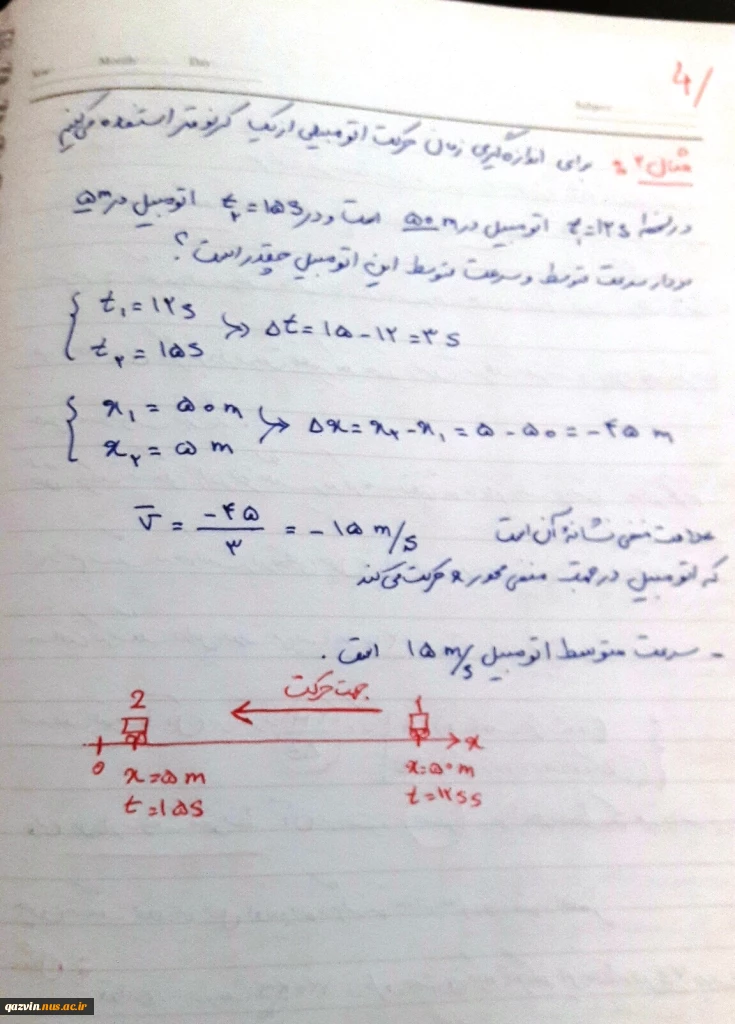 Month Day
4/
مثال ۲: برای اندازه‌گیری زمان حرکت اتومبیلی از یک کرنومتر استفاده می‌کنیم
در لحظه t₁=۱۲s اتومبیل در ۵۰m است و در t₂=۱۵s اتومبیل در ۵m
بردار سرعت متوسط و سرعت متوسط این اتومبیل چقدر است؟
t₁ = ۱۲s
t₂ = ۱۵s ↪ Δt = ۱۵ - ۱۲ = ۳ s
x₁ = ۵۰ m
x₂ = ۵ m ↪ Δx = x₂ - x₁ = ۵ - ۵۰ = -۴۵ m
v̅ = -۴۵/۳ = -۱۵ m/s علامت منفی نشانهٔ آن است
که اتومبیل در جهت منفی محور x حرکت می‌کند
- سرعت متوسط اتومبیل ۱۵ m/s است.
جهت حرکت
2 ۱
0 x
x=۵ m x=۵۰ m
t=۱۵s t=۱۲s s
qazvin.nus.ac.ir